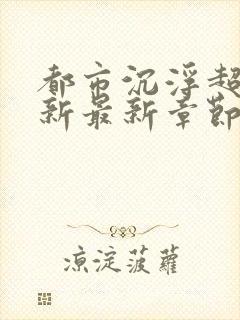 都市沉浮超
新最新章節
涼淀菠蘿